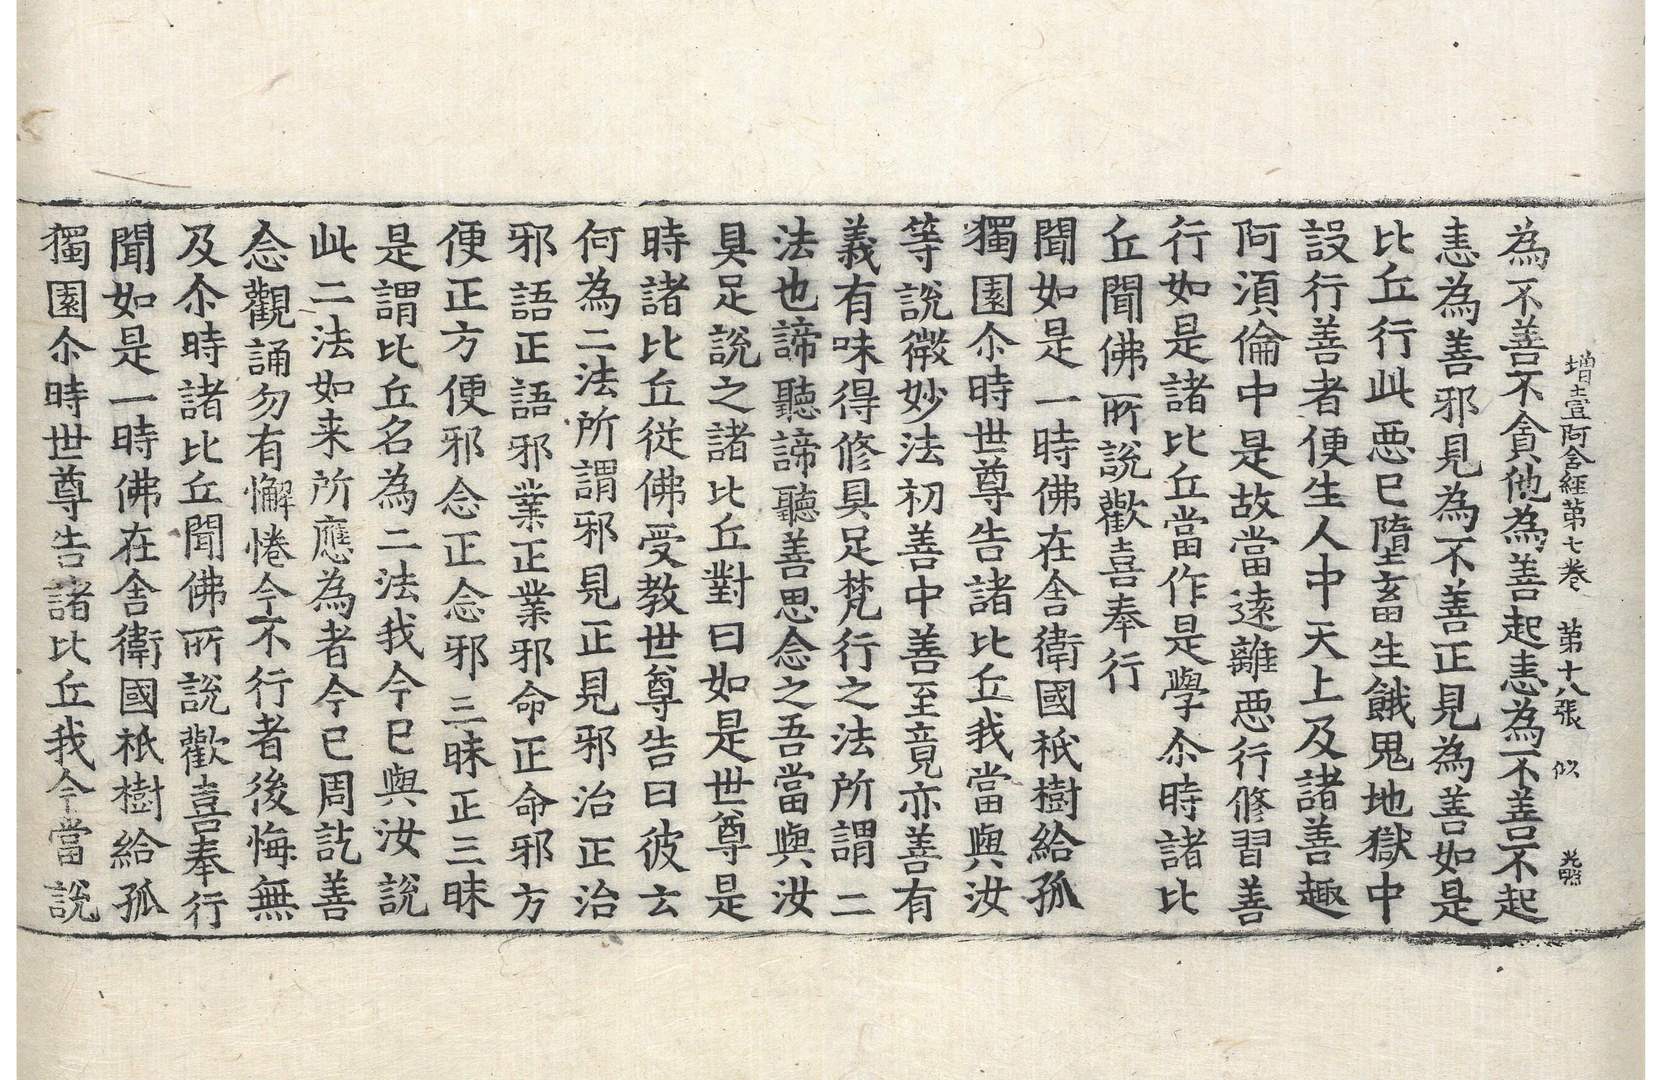 增壹阿含經第七卷 第十八張 似 光照
為不善不貪他為善起恚為不善不起
恚為善邪見為不善正見為善如是
比丘行此惡已墮畜生餓鬼地獄中
設行善者便生人中天上及諸善趣
阿須倫中是故當遠離惡行修習善
行如是諸比丘當作是學尒時諸比
丘聞佛所說歡喜奉行
聞如是一時佛在舍衛國祇樹給孤
獨園尒時世尊告諸比丘我當與汝
等說微妙法初善中善至竟亦善有
義有味得修具足梵行之法所謂二
法也諦聽諦聽善思念之吾當與汝
具足說之諸比丘對曰如是世尊是
時諸比丘從佛受教世尊告曰彼云
何為二法所謂邪見正見邪治正治
邪語正語邪業正業邪命正命邪方
便正方便邪念正念邪三昧正三昧
是謂比丘名為二法我今已與汝說
此二法如来所應為者今已周訖善
念觀誦勿有懈惓今不行者後悔無
及尒時諸比丘聞佛所說歡喜奉行
聞如是一時佛在舍衛國祇樹給孤
獨園尒時世尊告諸比丘我今當說